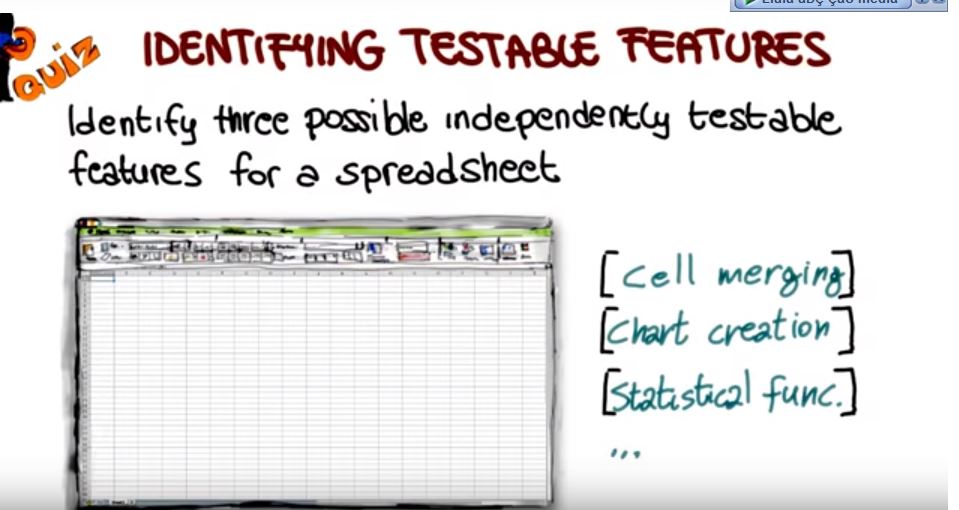 QUIZ
IDENTIFYING TESTABLE FEATURES
Identify three possible independently testable
features for a spreadsheet
[Cell merging]
[Chart creation]
[Statistical func.]
...